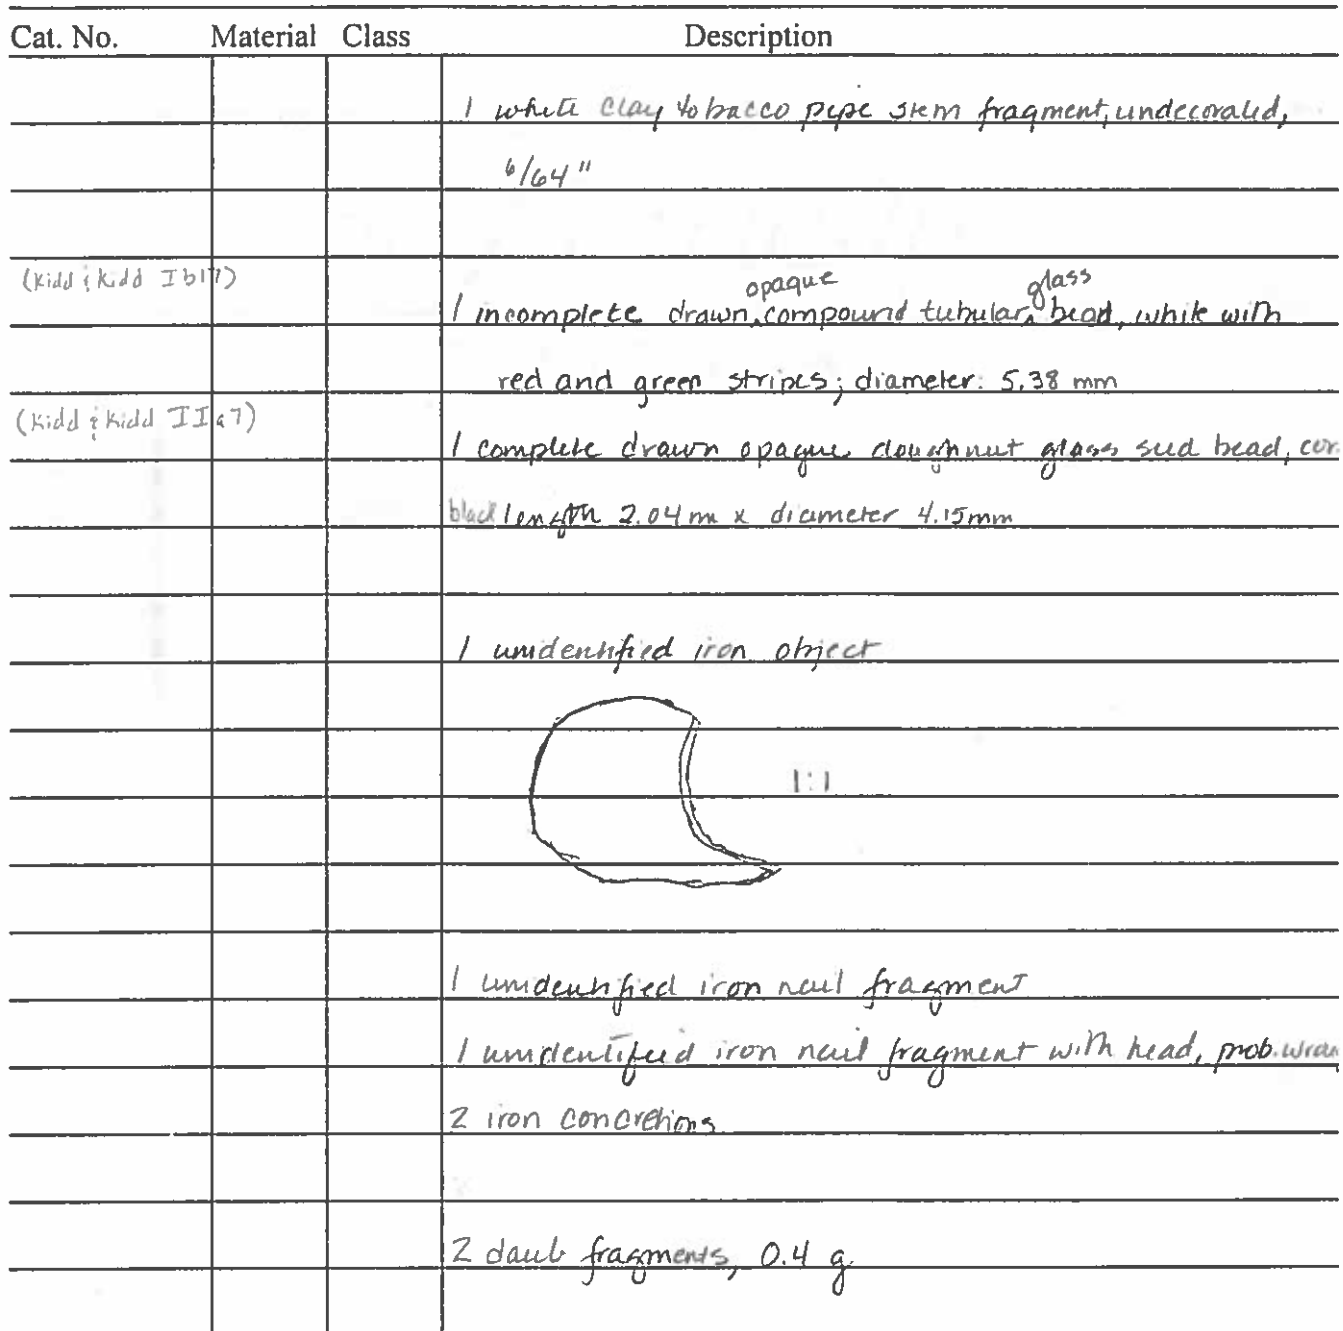 Cat. No. Material Class Description
1 white clay tobacco pipe stem fragment, undecorated,
6/64"
(Kidd & Kidd Ib17)
opaque glass
1 incomplete drawn compound tubular bead, white with
red and green stripes; diameter: 5.38 mm
(Kidd & Kidd IIa7)
1 complete drawn opaque doughnut glass seed bead,
black length 2.04 m x diameter 4.15mm
1 unidentified iron object
1:1
1 unidentified iron nail fragment
1 unidentified iron nail fragment with head, prob.
2 iron concretions
2 daub fragments, 0.4 g.